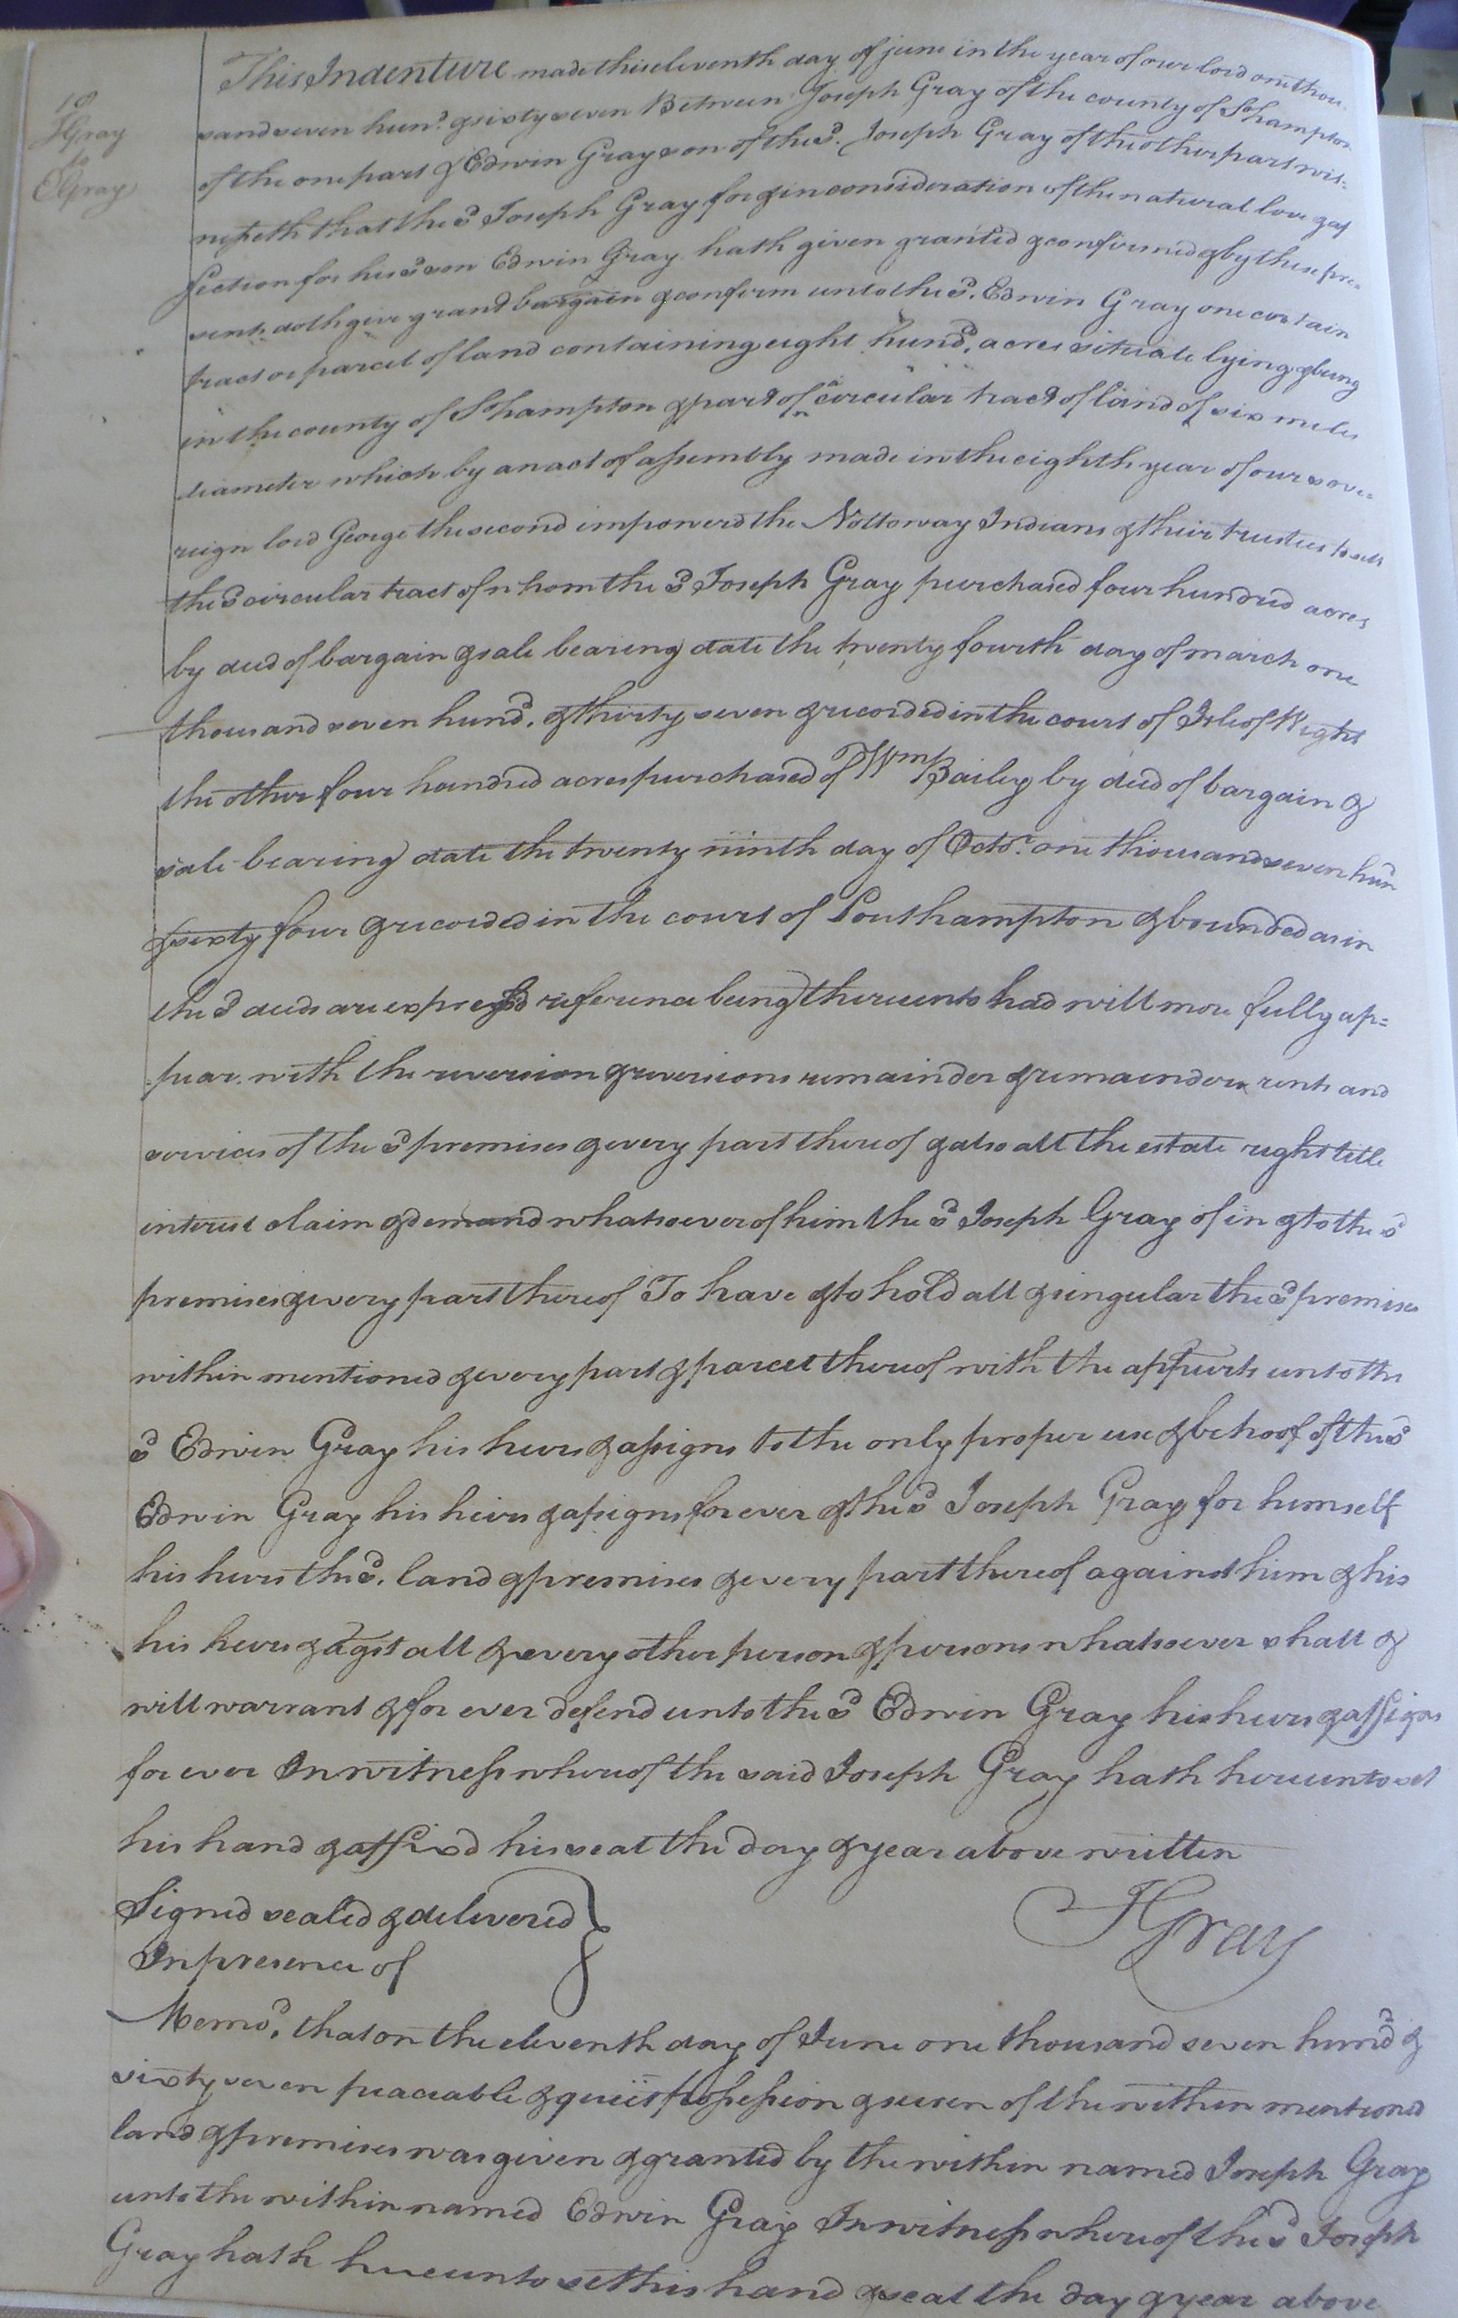 18
JGray
to
EGray
This Indenture made this eleventh day of june in the year of our lord one thou-
sand seven hund. & sixty seven Between Joseph Gray of the county of Shampton
of the one part & Edwin Gray son of the sd. Joseph Gray of the other part wit-
nesseth that the sd Joseph Gray for & in consideration of the natural love & af
fection for his sd son Edwin Gray hath given granted & confirmed & by these pre-
sents doth give grant bargain & confirm unto the sd. Edwin Gray one certain
tract or parcel of land containing eight hund. acres situate lying & being
in the county of Shampton & part of a circular tract of land of six miles
diameter which by an act of assembly made in the eighth year of our sove-
reign lord George the second impowerd the Nottoway Indians & their trustees to sell
the sd circular tract of whom the sd Joseph Gray purchased four hundred acres
by deed of bargain & sale bearing date the twenty fourth day of march one
thousand seven hund. & thirty seven & recorded in the court of Isle of Wight
the other four hundred acres purchased of Wm Bailey by deed of bargain &
sale bearing date the twenty ninth day of Octor. one thousand seven hun
& sixty four & recorded in the court of Southampton & bounded as in
the sd deeds are expressd reference being thereunto had will more fully ap=
pear with the reversion & reversions remainder & remainders rents and
services of the sd premises & every part thereof & also all the estate right title
interest claim & demand whatsoever of him the sd Joseph Gray of in & to the sd
premises & every part thereof To have & to hold all & singular the sd premises
within mentioned & every part & parcel thereof with the appurts unto the
sd Edwin Gray his heirs & assigns to the only proper use & behoof of the sd
Edwin Gray his heirs & assigns for ever & the sd Joseph Gray for himself
his heirs the sd. land & premises & every part thereof against him & his
his heirs & agst all & every other person & persons whatsoever shall &
will warrant & for ever defend unto the sd Edwin Gray his heirs & assigns
for ever In witness whereof the said Joseph Gray hath hereunto set
his hand & affixd his seal the day & year above written
Signed sealed & delivered
In presence of
JGray
Memod. that on the eleventh day of June one thousand seven hund &
sixty seven peaceable & quiet possession & seisen of the within mentioned
land & premises was given & granted by the within named Joseph Gray
unto the within named Edwin Gray In witness whereof the sd Joseph
Gray hath hereunto set his hand & seal the day & year above